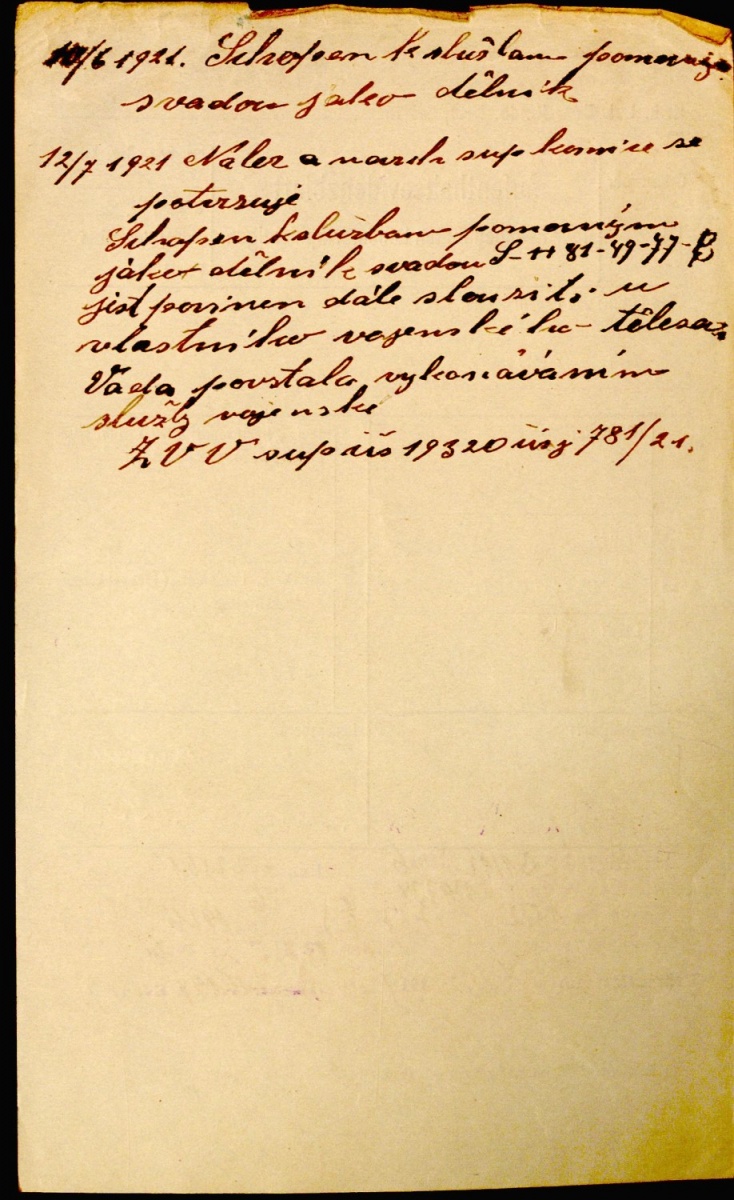 10/6 1921. Schopen k službam pomocným
svadou jako dělník
12/7 1921 Nález a navrh sup komise se
potvrzuje
Schopen k službam pomocným
jako dělník svadou S-H 81-49-47-B
jest povinen dále sloužiti u
vlastního vojenského tělesa.
Vada povstala vykonáváním
služby vojenské
Z V V sup čís 19320 111/21.